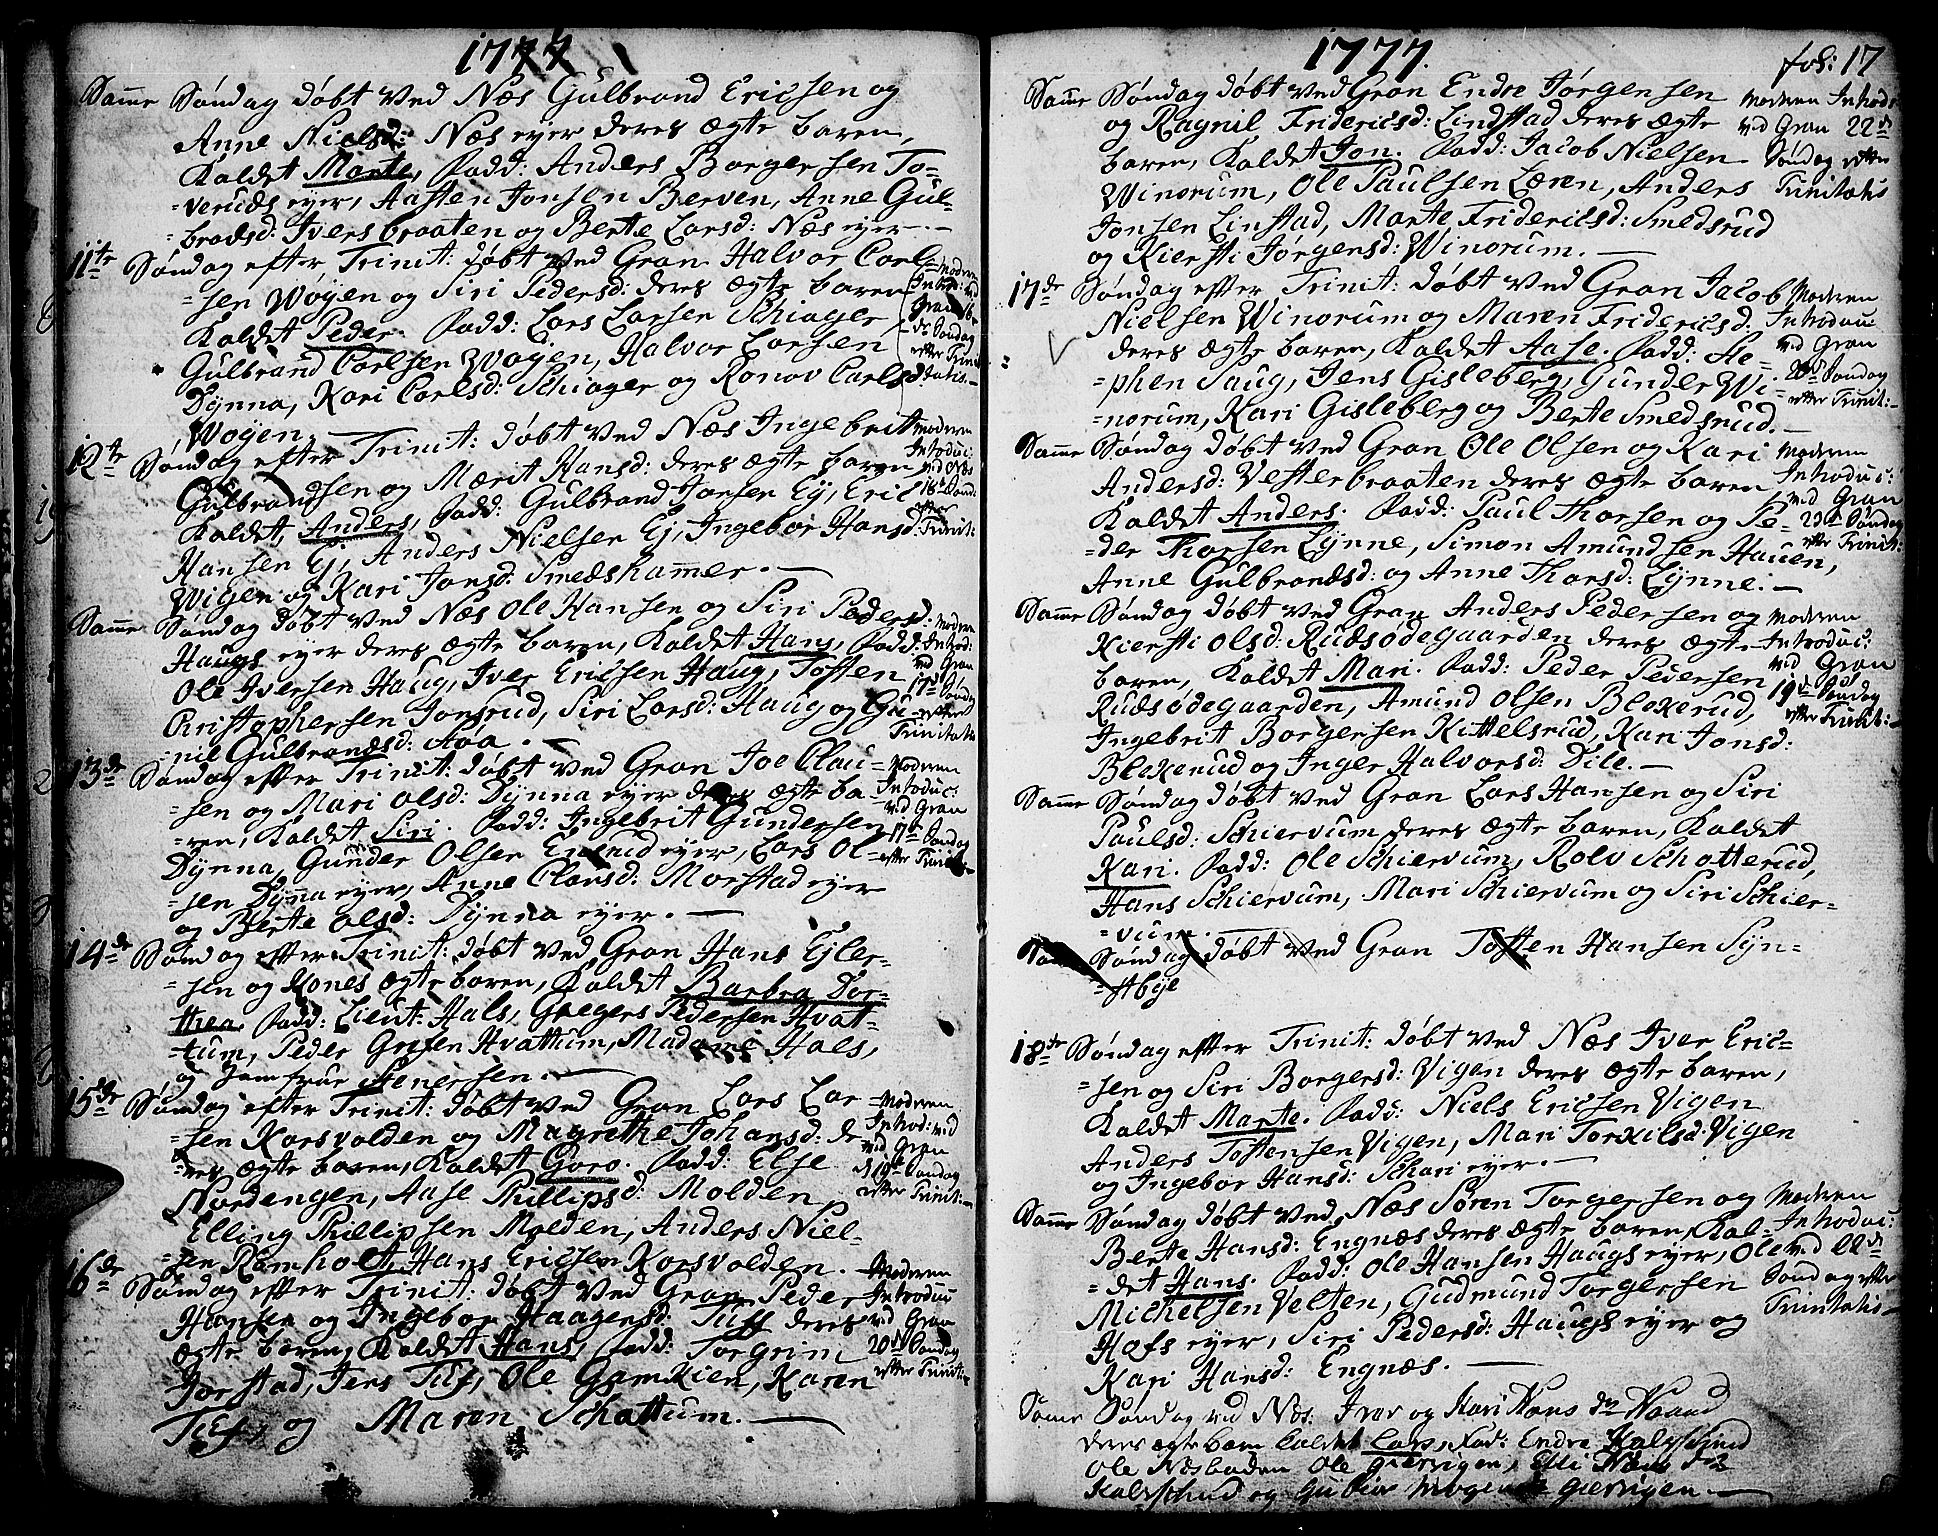 1777
Samme Søndag døbt ved Næs Gulbrand Ericsen og
Anne Nielsd: Næs eyer deres ægte baren,
Kaldet Marte, Fadd: Anders Borgersen To-
=veruds eyer, Aasten Jonsen Berven, Anne Gul-
=brodsd: Iversbraaten og Berte Larsd: Næs eyer.
11te Søndag efter Trinit: døbt ved Gran Halvor Carl=
=sen Wøyen og Siri Pedersd: deres ægte baren
Kaldet Peder. Fadd: Lars Larsen Schiager
Gulbrand Carlsen Wøyen, Halvor Larsen
Dynna, Kari Carlsd: Schiager og Ronov Carlsd
Wøyen.
Moderen
Introd: ved
Gran 16-
de Søndag
efter Trini-
tatis.-
12te Søndag efter Trinit: døbt ved Næs Ingebrit
Gulbrandsen og Marit Hansd: deres ægte baren
Kaldet, Anders, Fadd: Gulbrand Jonsen Ey, Eric
Hansen Ej, Anders Nielsen Ej, Ingebor Hansd:
Wigen og Kari Jonsd: Smedshammer.
Moderen
Introduc:
ved Næs
16de Sønd:
efter
Trinit:
Samme Søndag døbt ved Næs Ole Hansen og Siri Pedersd:
Haugs eyer deres ægte baren, Kaldet Hans, Fadd:
Ole Iversen Haug, Iver Ericsen Haug, Tosten
Christophersen Jonsrud, Siri Larsd: Haug og Gu-
nil Gulbrandsd: Aaa.
Moderen
Introd:
ved Gran
17de Søndag
efter
Trinitatis
13de Søndag efter Trinit: døbt ved Gran Joe Clau=
=sen og Mari Olsd: Dynna eyer deres ægte ba=
=ren, Kaldet Siri. Fadd: Ingebrit Gundersen
Dynna, Gunder Olsen eyer, Lars Ol=
=sen Dynna eyer, Anne Clausd: Morstad eyer
og Berte Olsd: Dynna eyer.
Moderen
Introduc:
ved Gran
17de Søndag
efter Trinit:
14de Søndag efter Trinit: døbt ved Gran Hans Ejler=
=sen og Kones ægte baren, Kaldet Barbra Dor=
thea. Fadd: Lieut: Hals, Gregers Pedersen Hvat=
=tum, Peder Gresen Hvattum, Madame Hals,
og Jomfrue Stenersen.
15de Søndag efter Trinit: døbt ved Gran Lars Lar
=sen Korsvolden og Magrethe Johansd: de
=res ægte baren, Kaldet Goro. Fadd: Else
Nordengen, Aase Phillipsd: Molden,
Elling Phillipsen Molden, Anders Niel=
=sen Ramholt, Hans Ericsen Korsvolden.
Moderen
Introd: ved
ved Gran
d 19de Søndag
efter Trinit:
16de Søndag efter Trinit: døbt ved Gran Peder
Hansen og Ingebor Haagensd: Tuff deres
ægte baren, Kaldet Hans, Fadd: Torgrim
Jorstad, Jens Tuf, Ole Gamkien, Karen
Tuf, og Maren Schattum.
Moderen
Introduc
ved Gran
20de Søndag
efter Trinit:
1777.
fol: 17
Samme Søndag døbt ved Gran Endre Jørgensen
og Ragnil Friderichsd: Lindstad deres ægte
baren, Kaldet Jon. Fadd: Jacob Nielsen
Winorum, Ole Paulsen Læren, Anders
Jonsen Linstad, Marte Fridericsd: Smedsrud
og Kiersti Jørgensd: Winorum.
Moderen Introd:
ved Gran 22de
Søndag efter
Trinitatis
17de Søndag efter Trinit: døbt ved Gran Jacob
Nielsen Winorum og Maren Fridericsd:
deres ægte baren, Kaldet Aase. Fadd: Ste=
=phen Saug, Jens Gisleberg, Gunder Wi=
=norum, Kari Gisleberg og Berte Smedsrud.
Moderen
Introduc:
ved Gran
20de Søndag
efter Trinit:
Samme Søndag døbt ved Gran Ole Olsen og Kari
Andersd: Vesterbraaten deres ægte baren
Kaldet Anders. Fadd: Paul Thorsen og Pe=
=der Thorsen Lynne, Simon Amundsen Hauen,
Anne Gulbrandsd: og Anne Thorsd: Lynne.
Moderen
Introduc:
ved Gran
23de Søndag
efter Trinit:
Samme Søndag døbt ved Gran Anders Pedersen og
Kiersti Olsd: Rudsødegaarden deres ægte
baren, Kaldet Mari. Fadd: Peder Pedersen
Rudsødegaarden, Amund Olsen Blekerud,
Ingebrit Borgersen Kittelsrud, Kari Jonsd:
Blekerud og Inger Halvorsd: Dile.
Moderen
Introduc:
ved Gran
19de Søndag
efter Trinit:
Samme Søndag døbt ved Gran Lars Hansen og Siri
Paulsd: Schiervum deres ægte baren, Kaldet
Kari. Fadd: Ole Schiervum, Rolv Schatterud,
Hans Schiervum, Mari Schiervum og Siri Schier=
=vum.
Samme Søndag døbt ved Gran Tosten Hansen Syn=
=stbye
18de Søndag efter Trinit: døbt ved Næs Iver Eric=
=sen og Siri Borgersd: Vigen deres ægte baren,
Kaldet Marte. Fadd: Niels Ericsen Vigen
Anders Tostensen Vigen, Mari Torkilsd: Vigen
og Ingebor Hansd: Schari eyer.
Samme Søndag døbt ved Næs Søren Torgersen og
Berte Hansd: Engnæs deres ægte baren, Kal=
=det Hans. Fadd: Ole Hansen Haugs eyer, Ole
Michelsen Velten, Gudmund Torgersen
Hofs eyer, Siri Pedersd: Haugs eyer og
Kari Hansd: Engnæs.
Moderen
Introduc:
ved 22de
Søndag efter
Trinitatis
Samme Søndag ved Næs. Iver og Kari Hans dr
deres ægte barn kaldet Lars, Fad: Endre
Ole Næsbaden Ole Gierrigen, Elli Hans dr
og Gierrigen.